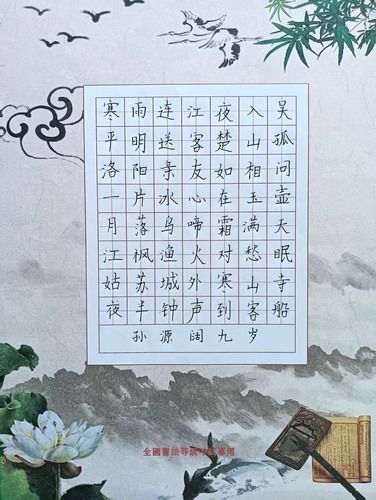 寒雨连江夜入吴
平明送客楚山孤
洛阳亲友如相问
一片冰心在玉壶
月落乌啼霜满天
江枫渔火对愁眠
姑苏城外寒山寺
夜半钟声到客船
孙源阔九岁
全國書法等級考試專用